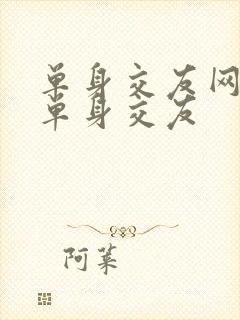 单身交友网
单身交友
阿菜